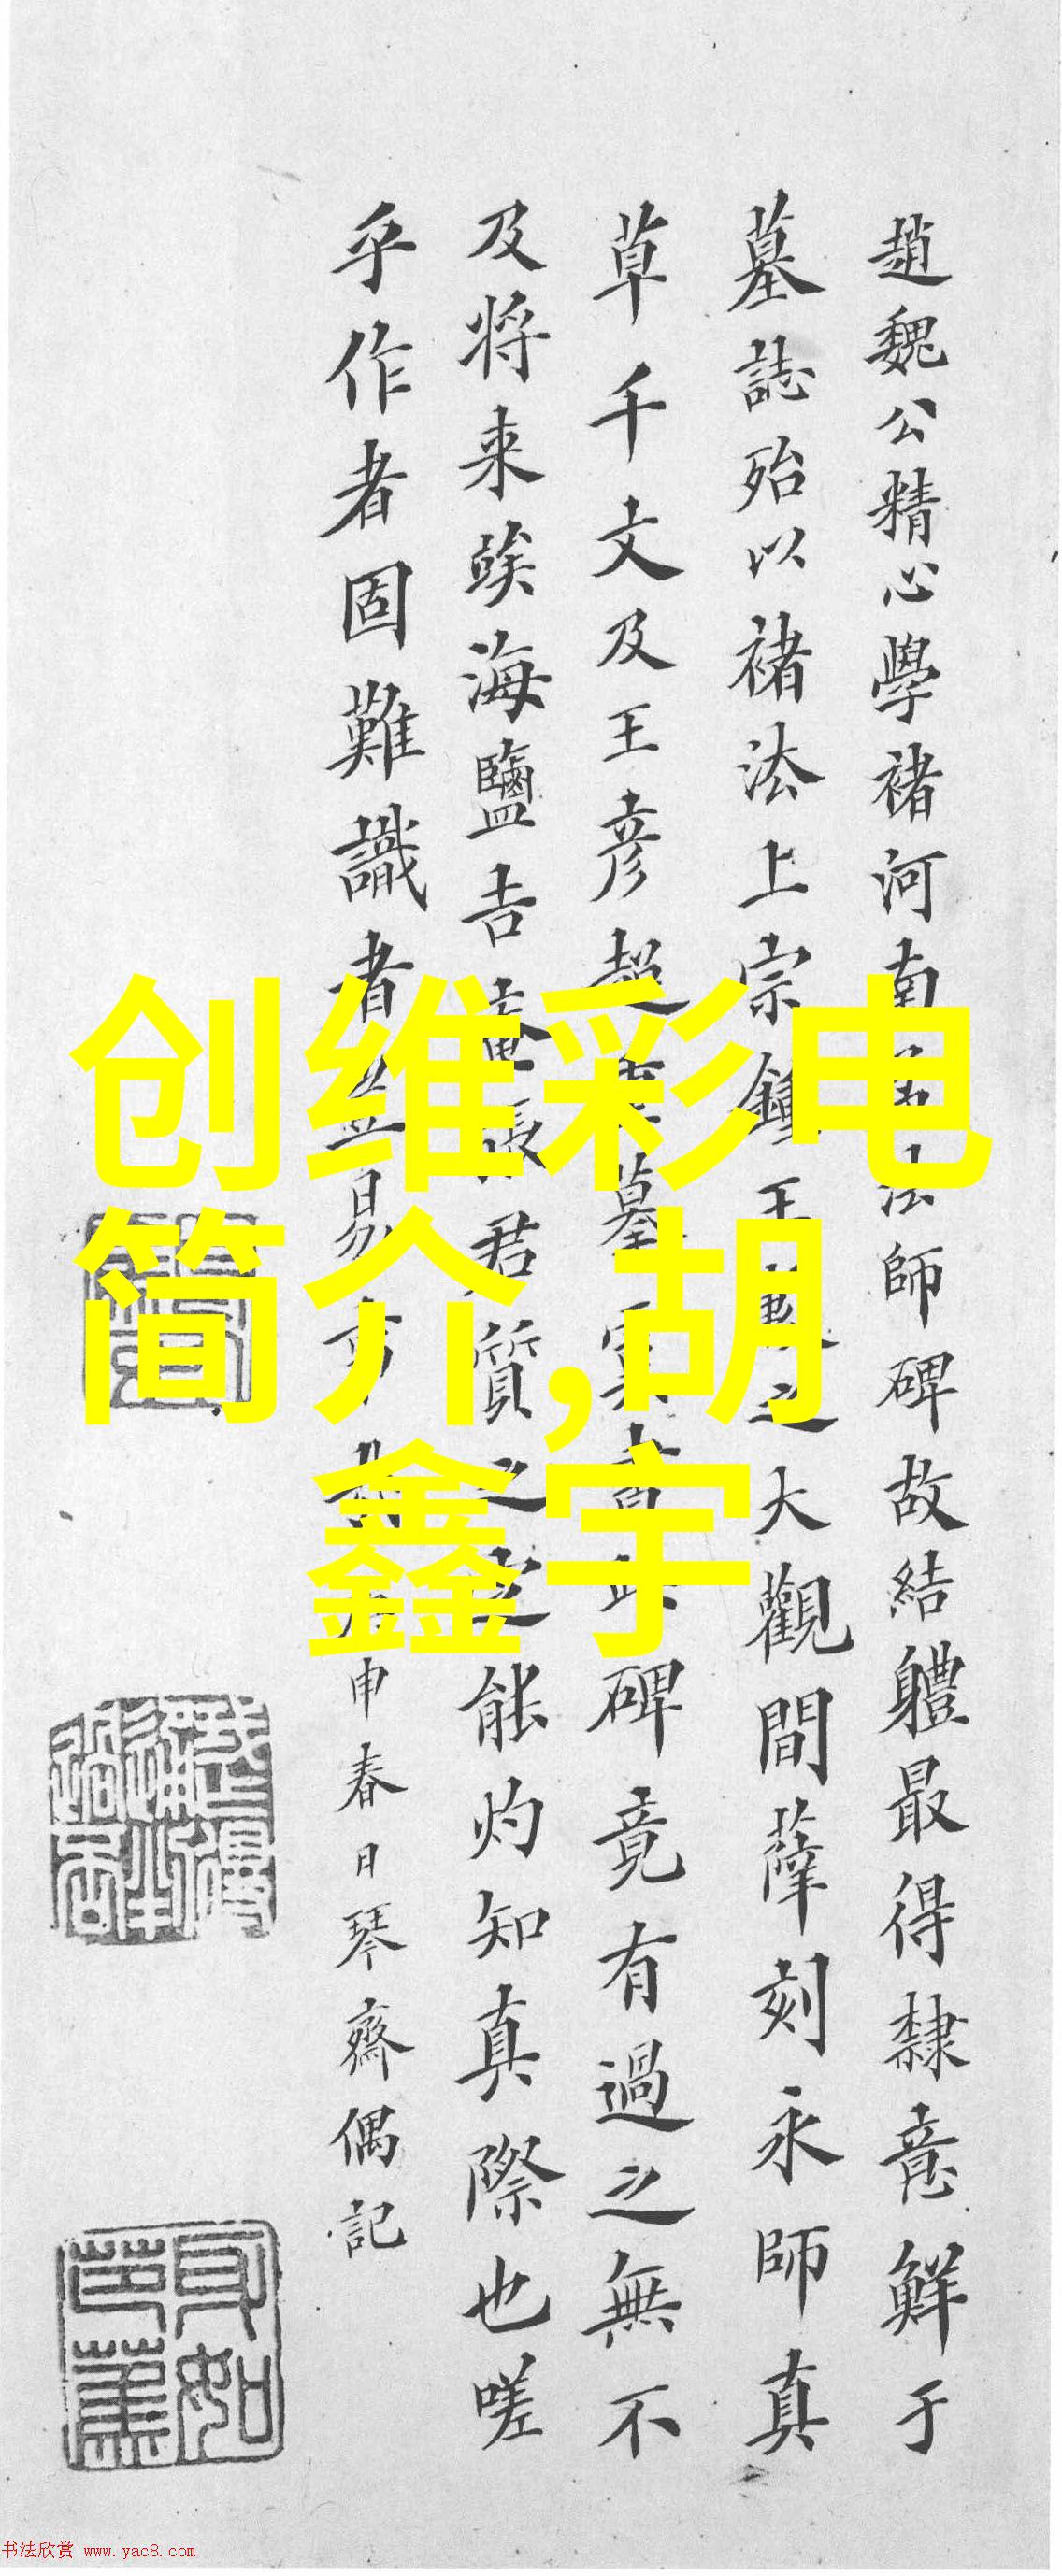 趙魏公精心學褚河南法師碑故結軆最得隸意鮮于
墓誌殆以褚法上宗鍾王之大觀間薛刻永師真
草千文及王彦超墓碑竟有過之無不
及将来俟海鹽吉張君質之能灼知真際也嗟
乎作者固難識者益易申春日琴齋偶記
创维彩电
简介,胡
鑫宇
书法欣赏 www.yac8.com